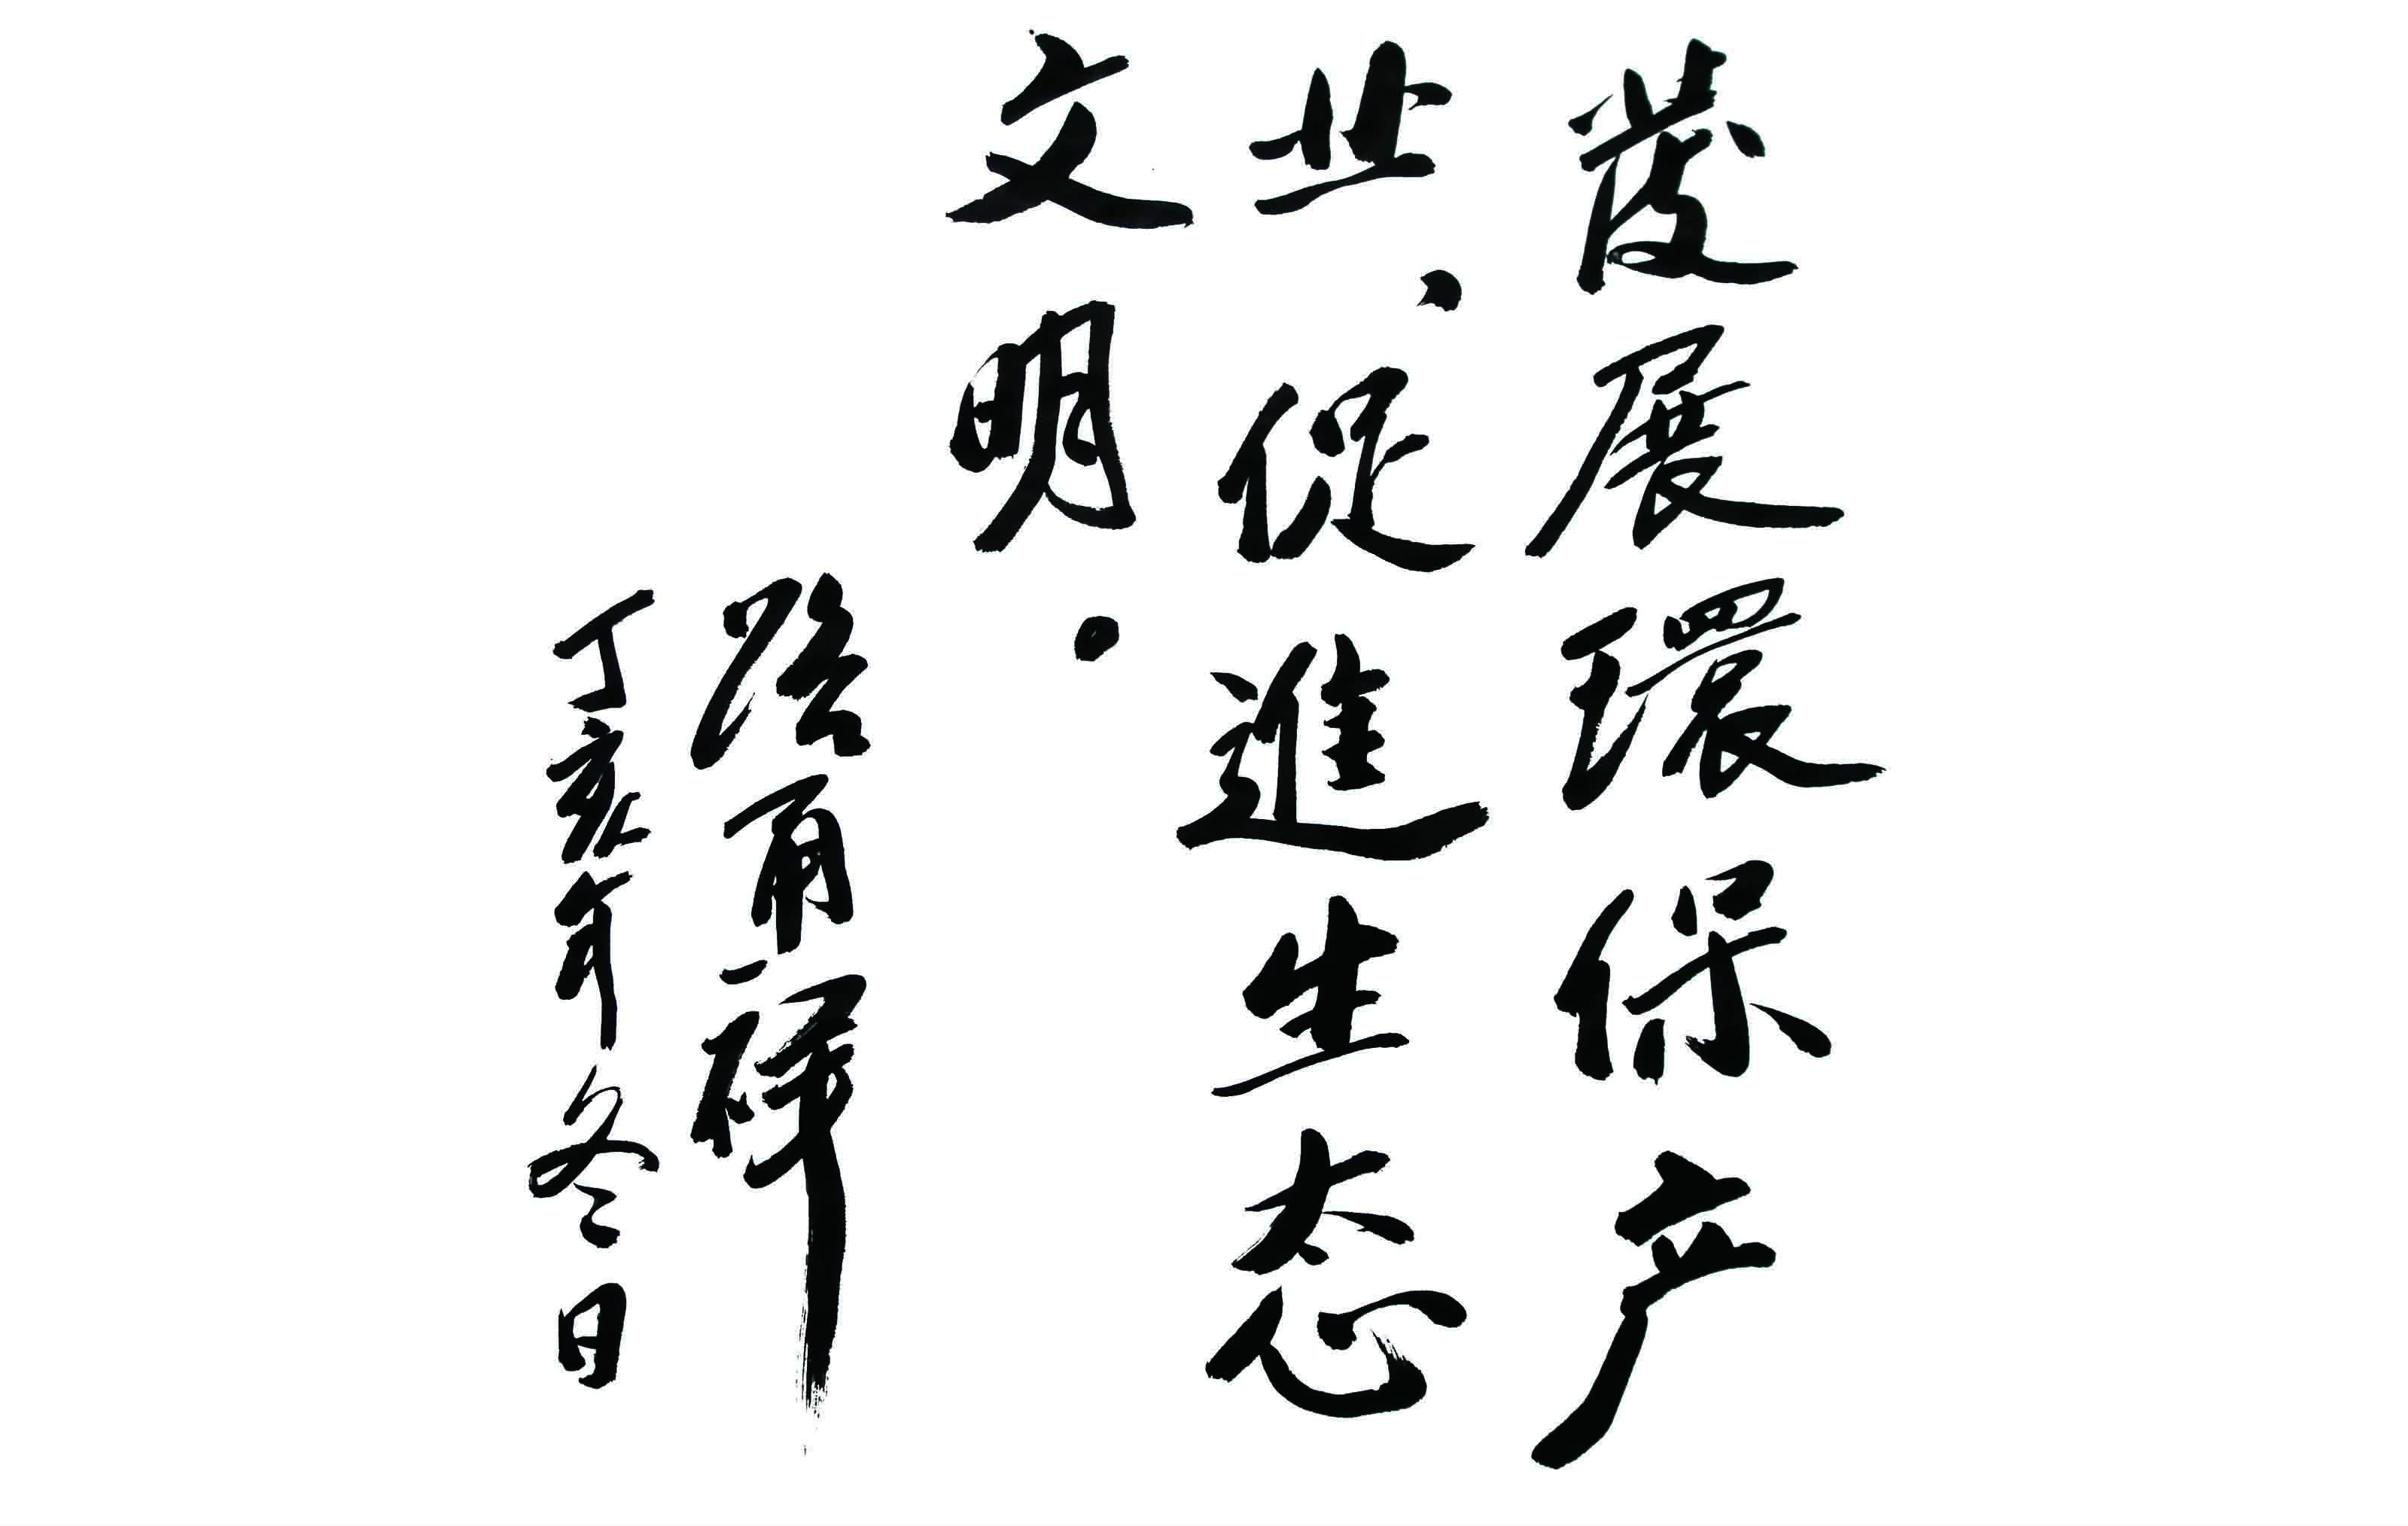 发展環保产
业、促進生态
文明。
路甬祥
丁亥年冬日